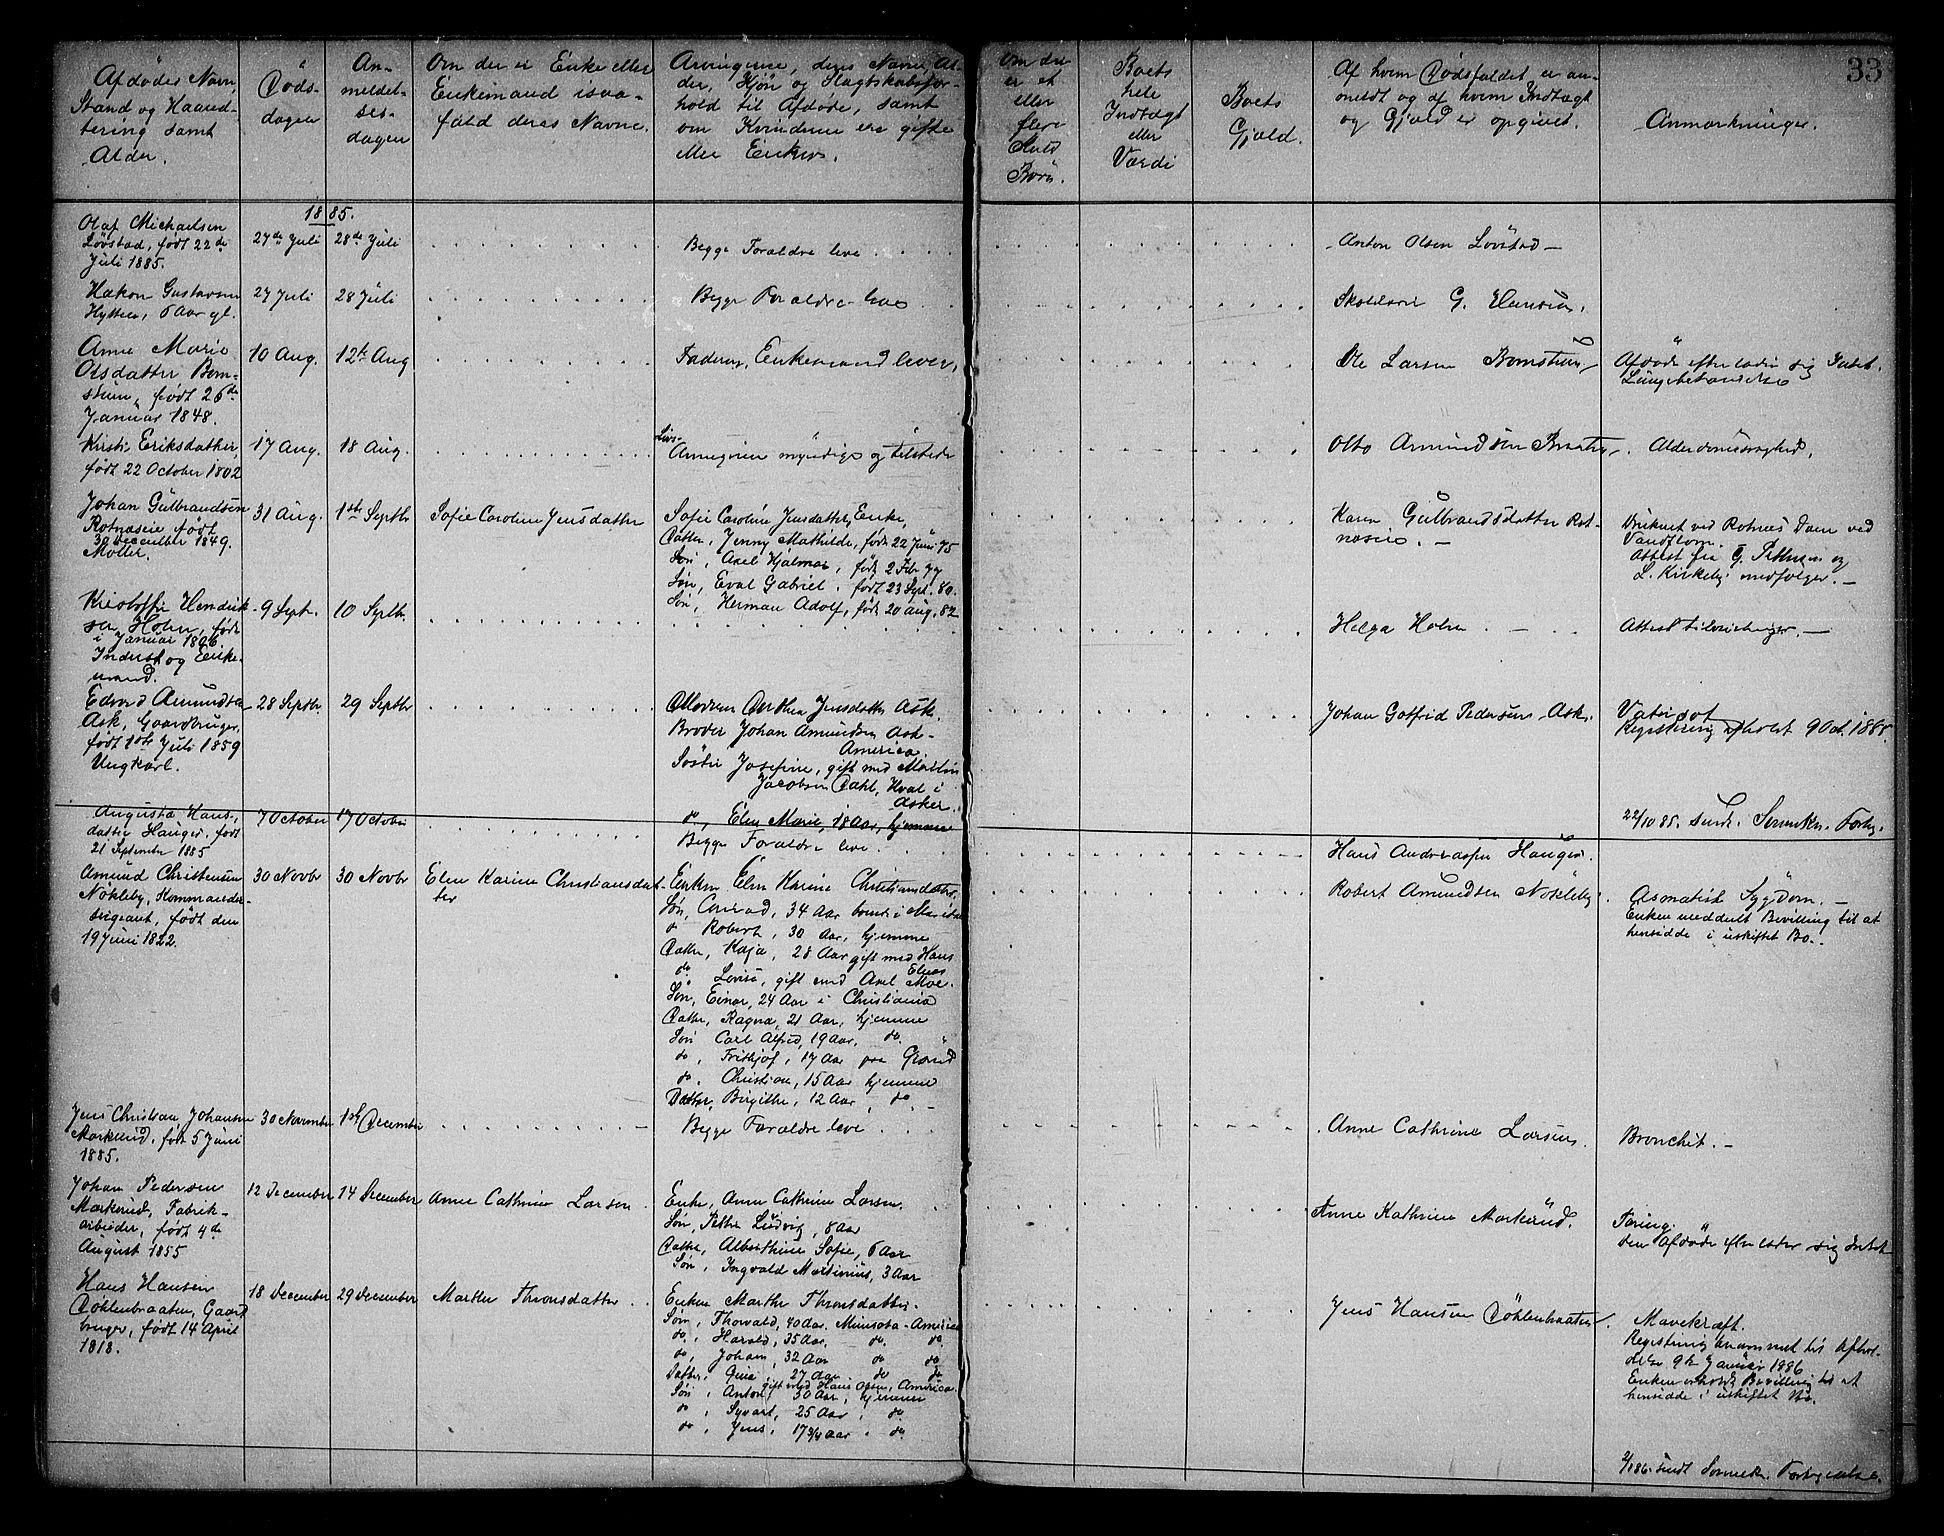 33
Afdødes Navn,
Stand og Haand-
tering samt
Alder.
Døds-
dagen
An-
meldel-
ses-
dagen
Om der er Enke eller
Enkemand isaa-
fald deres Navne.
Arvingerne, deres Navne, Al-
der, Kjøn og Slægtskabsfor-
hold til Afdøde, samt
om Kvinderne ere gifte
eller Enker.
Om der
er et
eller
flere
Kuld
Børn.
Boets
hele
Indtægt
eller
Værdi
Boets
Gjæld.
Af hvem Dødsfaldet er an-
meldt og af hvem Indtægt
og Gjæld er opgivet.
Anmærkninger.
1885.
Olaf Michaelsen
Løvstad, født 22de
Juli 1885.
27de Juli
28de Juli
Begge Forældre leve
Anton Olsen Løvstad
Hakon Gustavsen
Hytten, 6 Aar gl.
27 Juli
28 Juli
Begge Forældre leve
G. Hansen.
Anne Marie
Olsdatter Born-
stuen, født 26de
Januar 1848.
10 Aug.
12te Aug
Faderen, Enkemand lever,
Ole Larsen Bornstuen
Afdøde efterlader sig Intet.
Lungebetændelse
Kristi Eriksdatter
født 22 October 1802
17 Aug.
18 Aug.
Livs-
Arvingerne myndige og tilstede
Otto Amundsen Braaten
Alderdomssvaghed.
Johan Gulbrandsen
Rotnæseie født
30 December 1849.
Møller.
31 Aug.
1ste Septbr
Sofie Caroline Jensdatter
Sofie Caroline Jensdatter, Enke,
Datter, Jenny Mathilde, født 22 Juni 75
Søn, Axel Hjalmar, født 2 Febr 77
Søn, Eval Gabriel, født 23 Sept. 80.
Søn, Herman Adolf, født 20 Aug. 82
Karen Gulbrandsdatter Rot-
næseie. -
Druknet ved Rotnæs Dam ved
Vandflom.
Attest fra G. Pettersen og
L. Kirkeby medfølger. -
Kristoffer Hendrik-
sen Holm, født
i Januar 1806
Inderst og Enke-
mand.
9 Sept.
10 Septbr.
Helga Holm
Attest tilveiebringes. -
Edvard Amundsen
Ask, Gaardbruger,
født 1ste Juli 1859
Ungkarl.
28 Septbr.
29 Septbr
Moderen Dorthea Jensdatter Ask.
Broder Johan Amundsen Ask-
America.
Søster Josefine, gift med Martin
Jacobsen Dahl, Hval i
Asker.
do., Elen Marie, 18 Aar, hjemme
Johan Gotfrid Pedersen Ask.
Vatersot
Registrering afholdt 9 Oct. 1885.
22/10 85. Sendt Sorenskr. Fortg.
Augusta Hans-
datter Hauger, født
21 September 1885
7 October
17 October
Begge Forældre leve
Hans Andreassen Hauger.
Amund Christensen
Nökleby, Kommander-
sergeant, født den
19 Juni 1822.
30 Novbr
30 Novbr
Elen Karine Christiansdat-
ter
Enken Elen Karine Christiansdatter,
Søn, Conrad, 34 Aar
do Robert, 30 Aar, hjemme
Datter, Kaja, 28 Aar gift med Hans
do Lovise, gift med Axel Moe.
Søn, Einar, 24 Aar i Christiania
Datter, Ragna, 21 Aar, hjemme
Søn Carl Alfred, 19 Aar, do.
do, Frithjof, 17 Aar paa Grønd
do. Christian, 15 Aar hjemme
Datter, Birgithe, 12 Aar, do. -
Robert Amundsen Nökleby.
Asmatisk Sygdom. -
Enken meddelt Bevilling til at
hensidde i uskiftet Bo. -
Jens Christian Johansen
Markerud, født 5 Juni
1885.
30 November
1ste December
Begge Forældre leve
Anne Cathrine Larsen.
Bronchit. -
Johan Pedersen
Markerud, Fabrik-
arbeider, født 4de
August 1855
12 December
14 December
Anne Cathrine Larsen
Enke, Anne Cathrine Larsen.
Søn, Petter Ludvig, 8 Aar
Datter, Alberthine Sofie, 6 Aar
Søn, Ingvald Martinius, 3 Aar
Anne Kathrine Markerud.
Tæring.
den Afdøde efterlader sig Intet
Hans Hansen
Döhlenbraaten, Gaard-
bruger, født 14 April
1818.
18 December
29 December
Marthe Thronsdatter
Enken Marthe Thronsdatter.
Søn, Thorvald, 40 Aar. Minnsota-America
do, Harald, 35 Aar, do do.
do, Johan, 32 Aar do do
Datter, 27 Aar do do
gift med Hans Olsen, America.
Søn, Anton, 30 Aar, hjemme
do, Syvert, 25 Aar, do.
do, Jens, 17 3/4 Aar, do.
Jens Hansen Döhlenbraaten.
Mavekræft.
Registrering berammet til Afhol-
delse 9de Januar 1886
Enken erholdt Bevilling til at
hensidde i uskiftet Bo.
sendt Sorenskr. Fortegnelse.